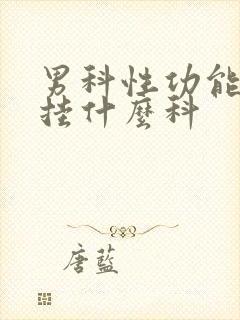 男科性功能
挂什麼科
唐藍